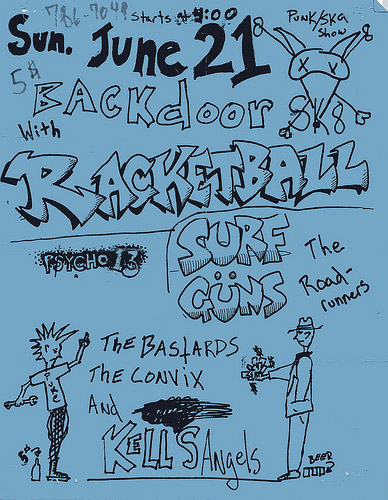 786-7049 Starts at 9:00
Sun. June 21
PUNK/SKA
Show
5$
BACKdOOR SK8
With
RACKETBALL
SURF
GÜNS
The
Road-
runners
PSYCHO 13
THE BASTARDS
THE CONVIX
AND
KELL'S Angels
5$
BEER